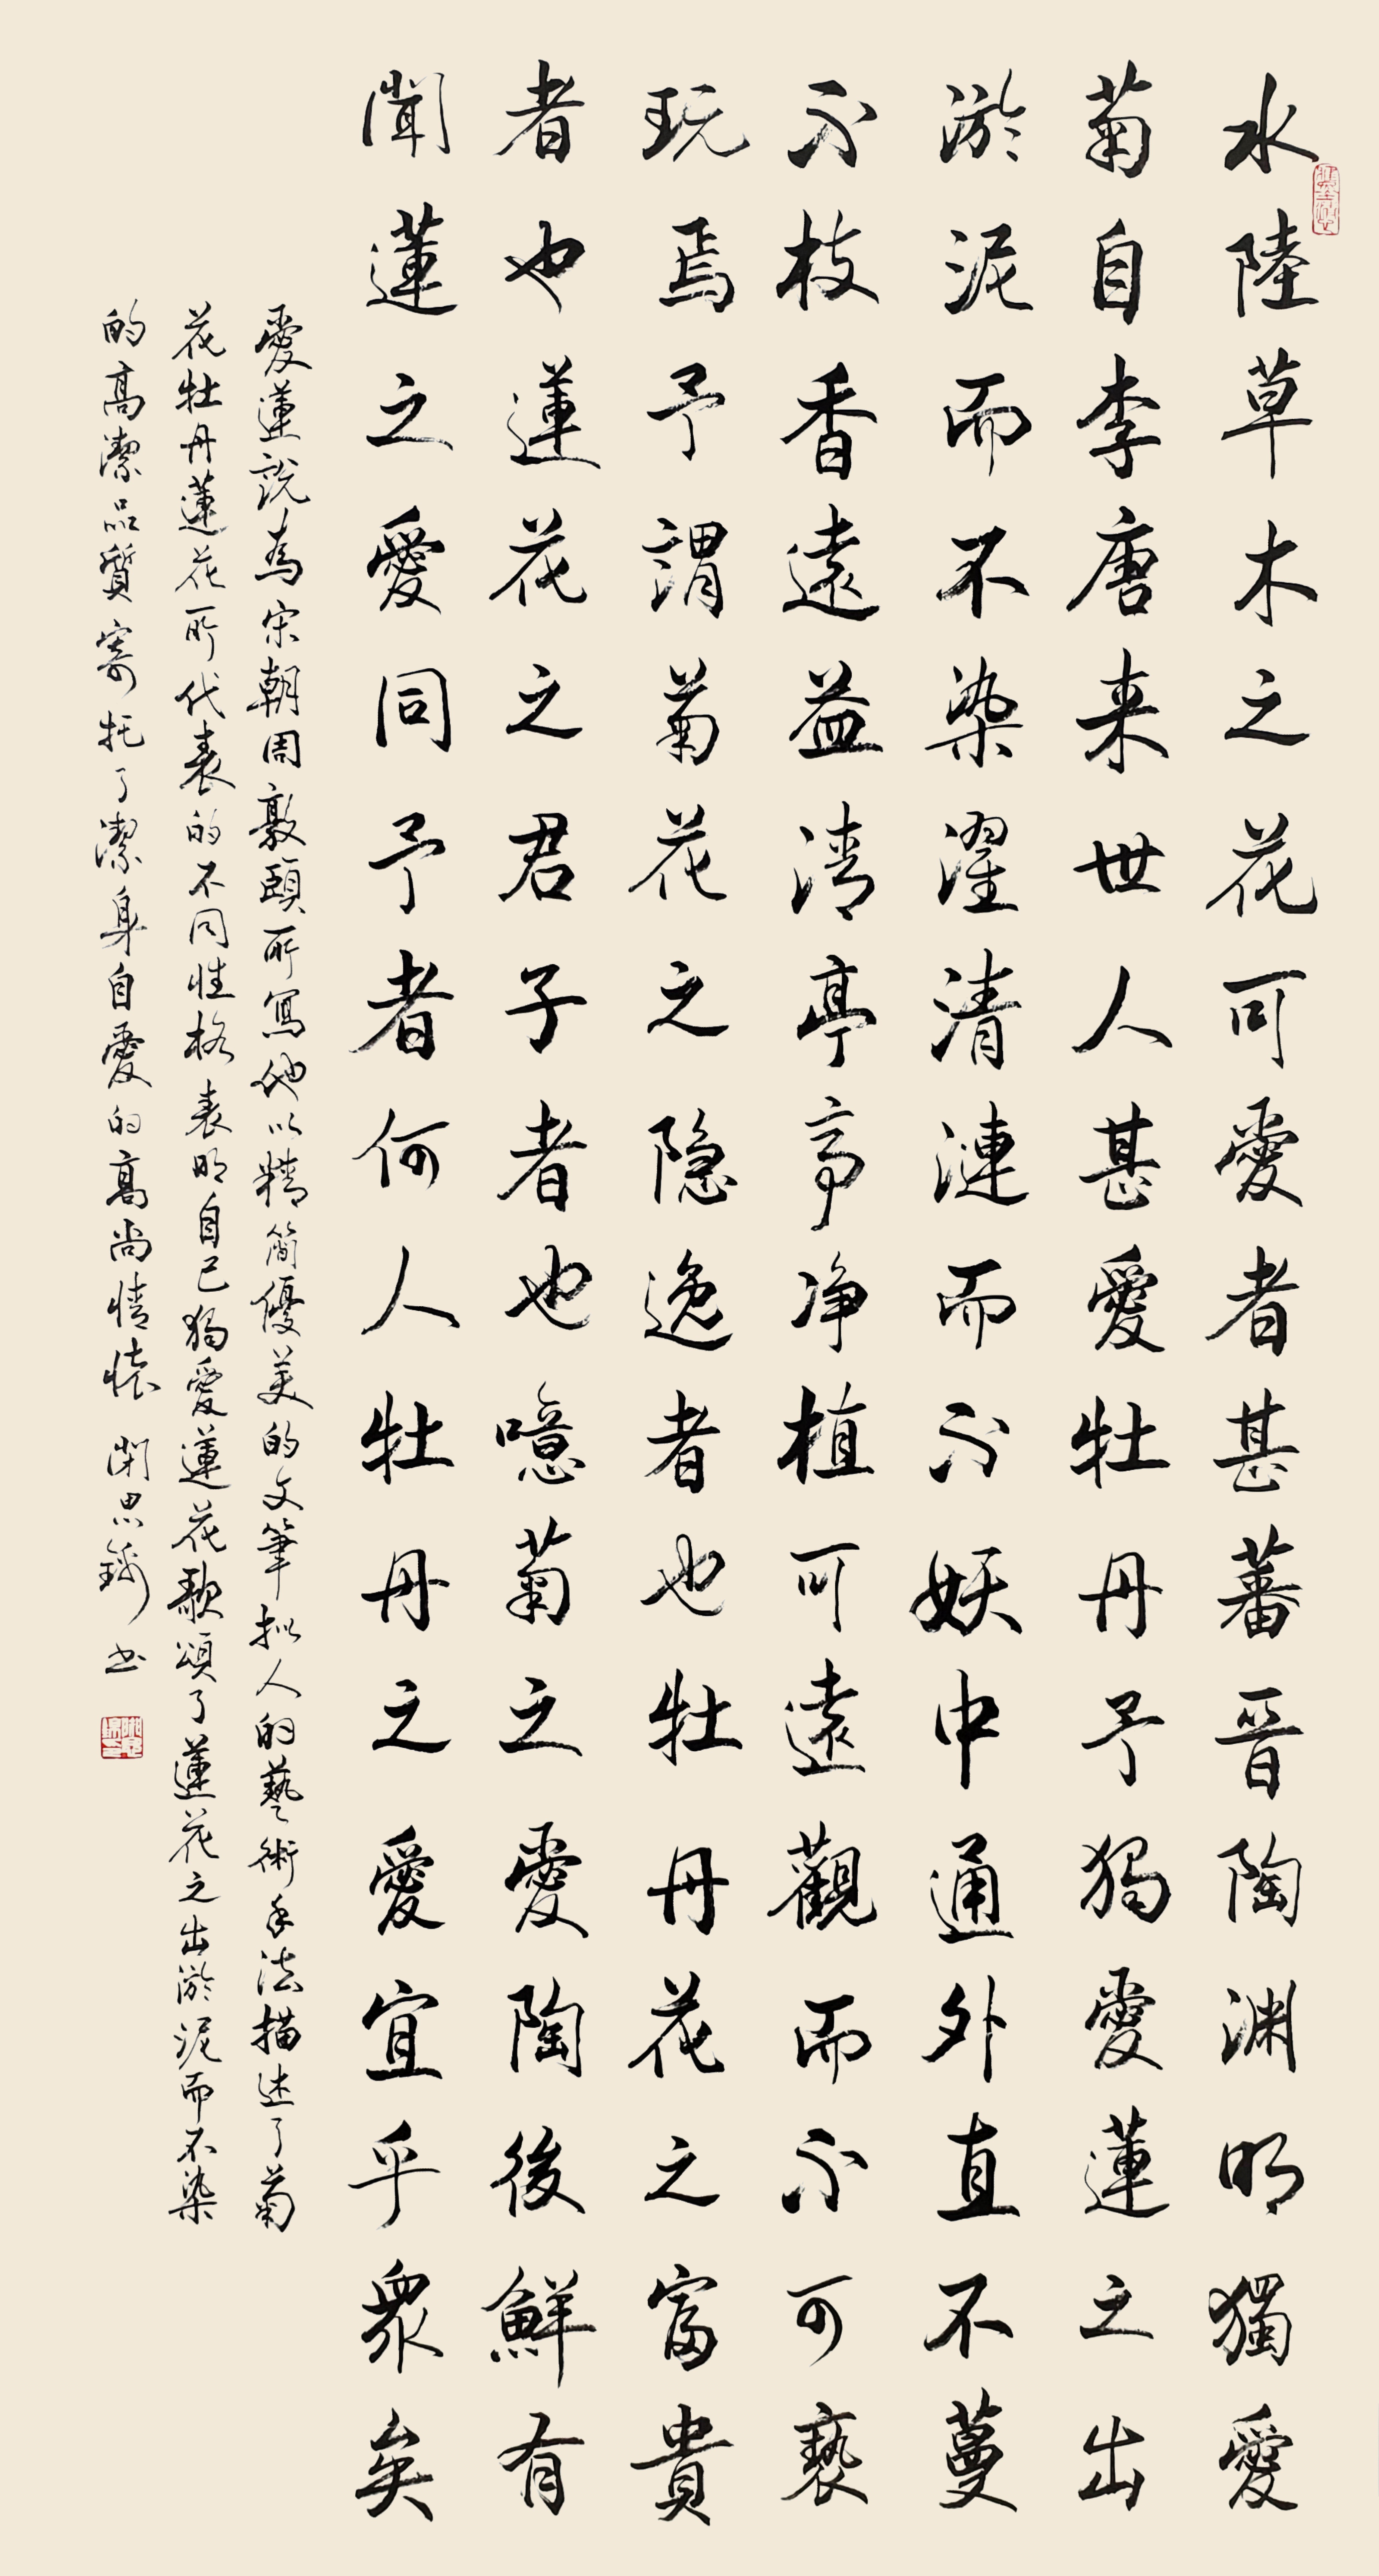 水陸草木之花可愛者甚蕃晉陶渊明獨愛
菊自李唐来世人甚愛牡丹予獨愛蓮之出
淤泥而不染濯清漣而不妖中通外直不蔓
不枝香遠益清亭亭净植可遠觀而不可褻
玩焉予謂菊花之隐逸者也牡丹花之富貴
者也蓮花之君子者也噫菊之愛陶後鮮有
聞蓮之愛同予者何人牡丹之愛宜乎眾矣
愛蓮說為宋朝周敦頤所寫他以精簡優美的文筆拟人的藝術手法描述了菊
花牡丹蓮花所代表的不同性格表明自己獨愛蓮花歌頌了蓮花之出淤泥而不染
的高潔品質寄托了潔身自愛的高尚情懷 思錦书